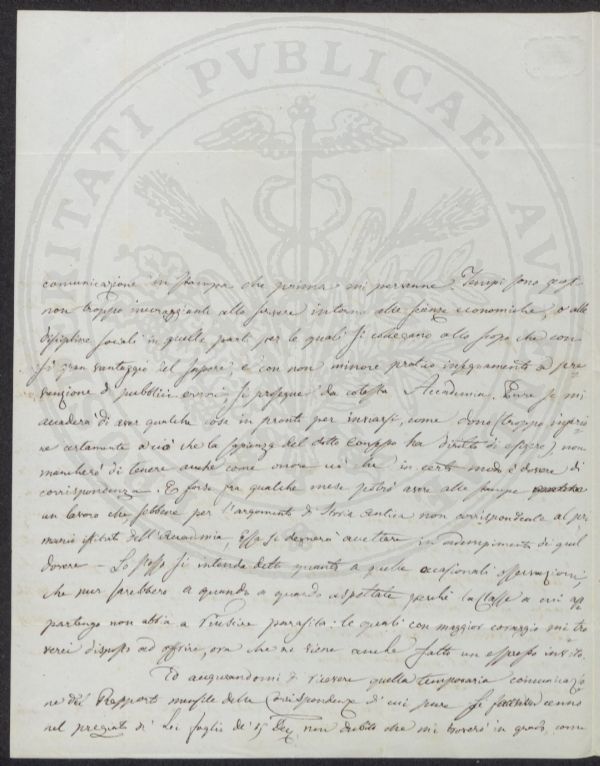 comunicazione in stampa che prima mi pervenne. Tempi sono questi
non troppo incoraggianti allo scrivere intorno alle scienze economiche, o alle
discipline sociali in quelle parti per le quali si collegano allo scopo che con
sì gran vantaggio del sapere, e con non minore pratico insegnamento a pre
venzione di pubblici errori si prosegue da cotesta Accademia. Pure se mi
accaderà di aver qualche cosa in pronto per inviarsi, come dono (troppo inferio
re certamente a ciò che la sapienza del dotto Consesso ha diritto di esigere) non
mancherò di tenere anche come onore ciò che in certo modo è dovere di
corrispondenza. E forse fra qualche mese potrò avere alle stampe
un lavoro che, sebbene per l'argomento di Storia antica non corrispondente al pri
mario istituto dell'Accademia, Essa si degnerà accettare in adempimento di quel
dovere. Lo stesso si intenda detto quanto a quelle occasionali osservazioni,
che pur sarebbero a quando a quando aspettate perché la Classe a cui ap
partengo non abbia a riuscire parassita: le quali con maggior coraggio mi tro
verei disposto ad offrire, ora che ne viene anche fatto un espresso invito.
Ed augurandomi di ricevere quella temporaria comunicazio
ne del Rapporto mensile della Corrispondenza di cui pure si cenno
nel pregiato di Lei foglio de' 15 non dubito che mi troverò in grado, come
VTILITATI PVBLICAE